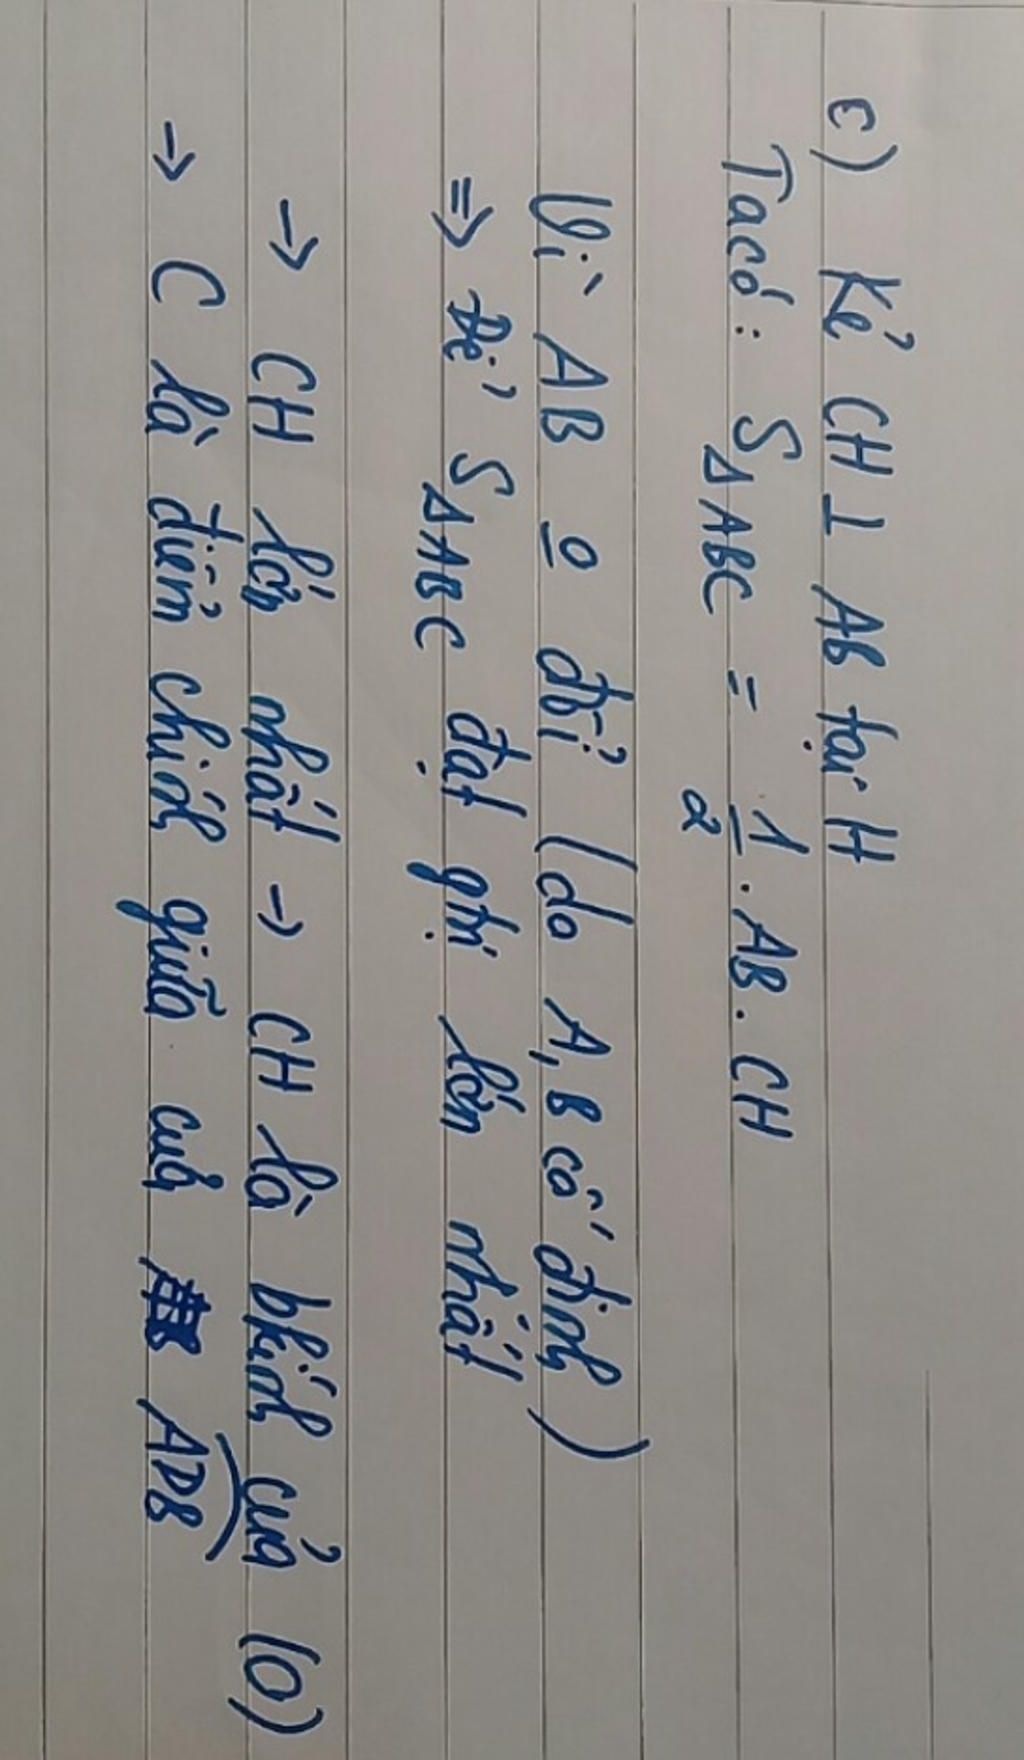 c) Kẻ CH ⊥ AB tại H
Ta có: S△ABC = 1/2 . AB . CH
Vì AB o đổi (do A, B cố định)
=> Để S△ABC đạt gtrị lớn nhất
→ CH lớn nhất → CH là bkính của (O)
→ C là điểm chính giữa của ADB